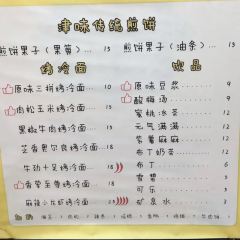 津味传统煎饼
煎饼果子（果蓖） 13 煎饼果子（油条） 15
烤冷面
原味三拼烤冷面 10
肉松玉米烤冷面 15
黑椒牛肉烤冷面
芝香奥尔良烤冷面
牛劲十足烤冷面 18
香芋至尊烤冷面 18
麻辣小龙虾烤冷面
饮品
原味豆浆 9
酸梅汤 9
蜜桃冰茶 12
元气满满 12
紫薯麻麻 12
布丁奶茶 12
布丁 6
雪碧 6
可乐 6
矿泉水 3